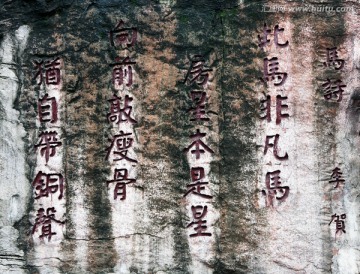 馬詩 李賀
此馬非凡馬
房星本是星
向前敲瘦骨
猶自帶銅聲
www.huitu.com